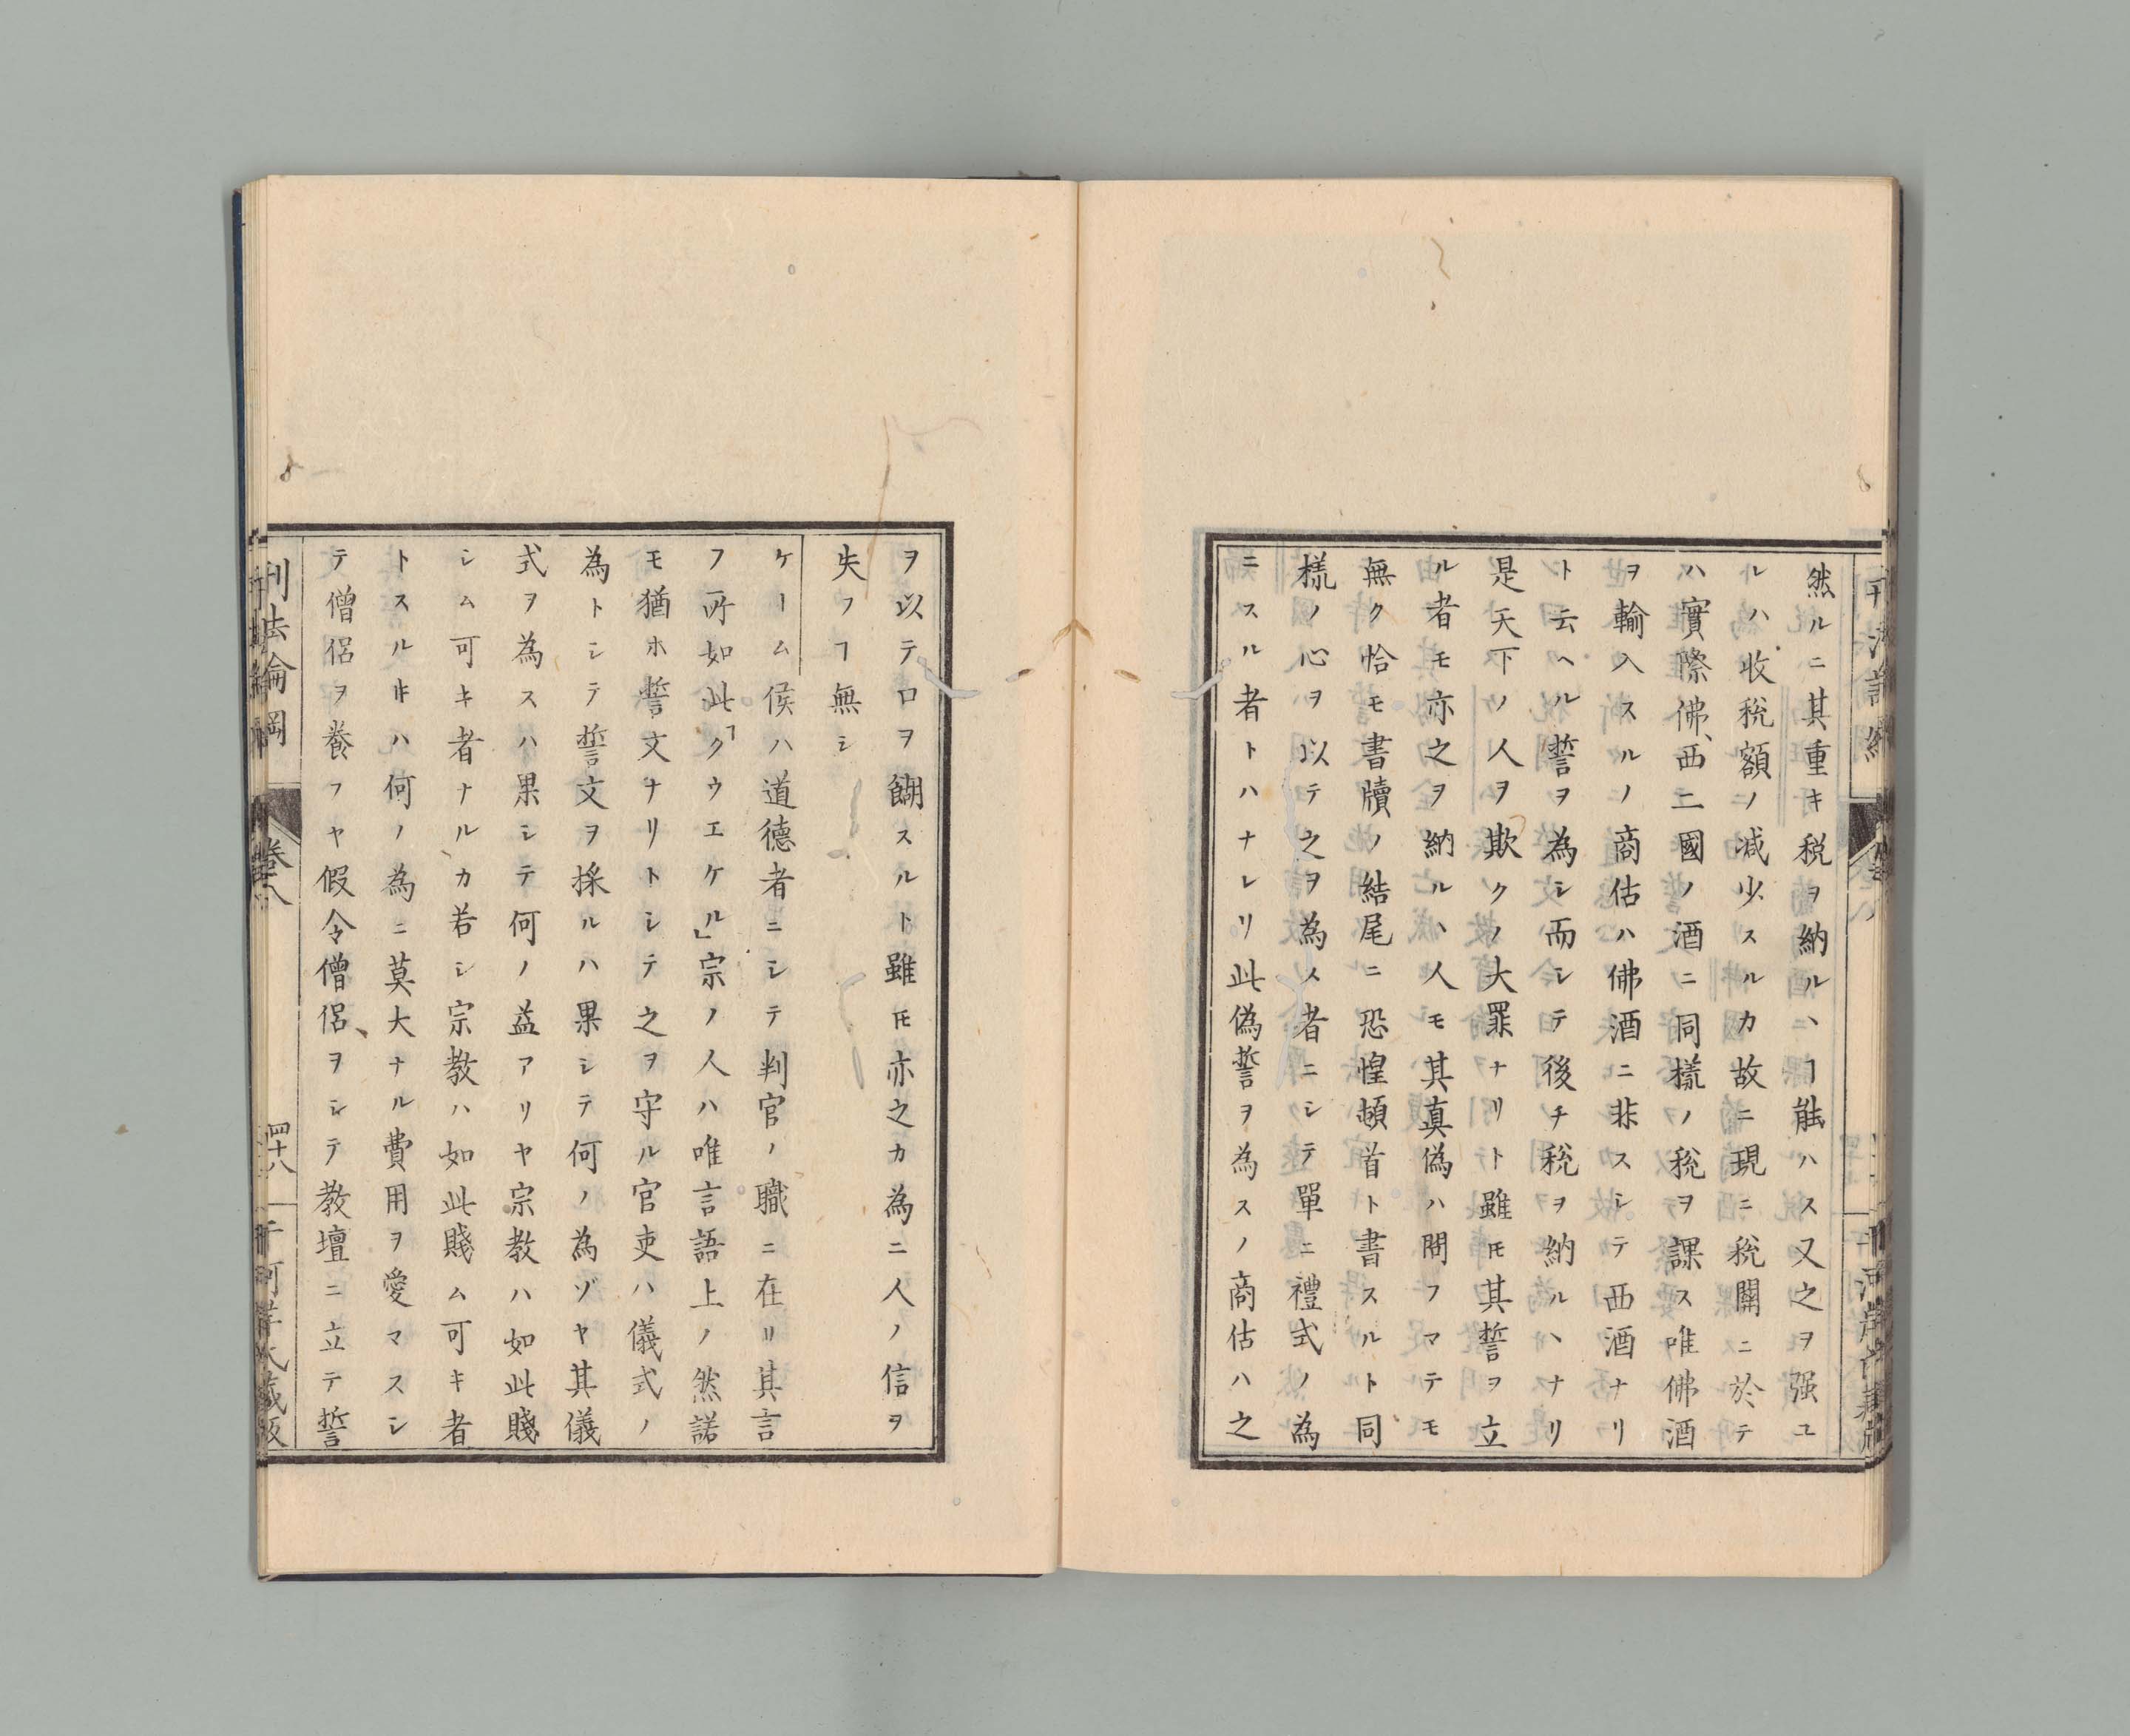 然ルニ其重キ税ヲ納ルヽヿ能ハス又之ヲ强ユ
レハ收稅額ノ減少スルカ故ニ現ニ稅關ニ於テ
ハ實際佛、西二國ノ酒ニ同樣ノ稅ヲ課ス唯佛酒
ヲ輸入スルノ商估ハ佛酒ニ非スシテ西酒ナリ
ト云ヘル誓ヲ為シ而シテ後チ稅ヲ納ルヽナリ
是天下ノ人ヲ欺クノ大罪ナリト雖𪜈其誓ヲ立
ル者モ亦之ヲ納ルヽ人モ其真偽ハ問フマテモ
無ク恰モ書牘ノ結尾ニ恐惶頓首ト書スルト同
樣ノ心ヲ以テ之ヲ為ス者ニシテ單ニ禮式ノ為
ニスル者トハナレリ此偽誓ヲ為スノ商估ハ之
ヲ以テ口ヲ餬スルト雖𪜈亦之カ為ニ人ノ信ヲ
失フヿ無シ
ケーム侯ハ道德者ニシテ判官ノ職ニ在リ其言
フ所如此「クウエケル」宗ノ人ハ唯言語上ノ然諾
モ猶ホ誓文ナリトシテ之ヲ守ル官吏ハ儀式ノ
為トシテ誓文ヲ採ルハ果シテ何ノ為ゾヤ其儀
式ヲ為スハ果シテ何ノ益アリヤ宗教ハ如此賤
シム可キ者ナルカ若シ宗教ハ如此賤ム可キ者
トスルキハ何ノ為ニ莫大ナル費用ヲ愛マスシ
テ僧侶ヲ養フヤ假令僧侶ヲシテ教壇ニ立テ誓
刑法論綱
卷八
四十八